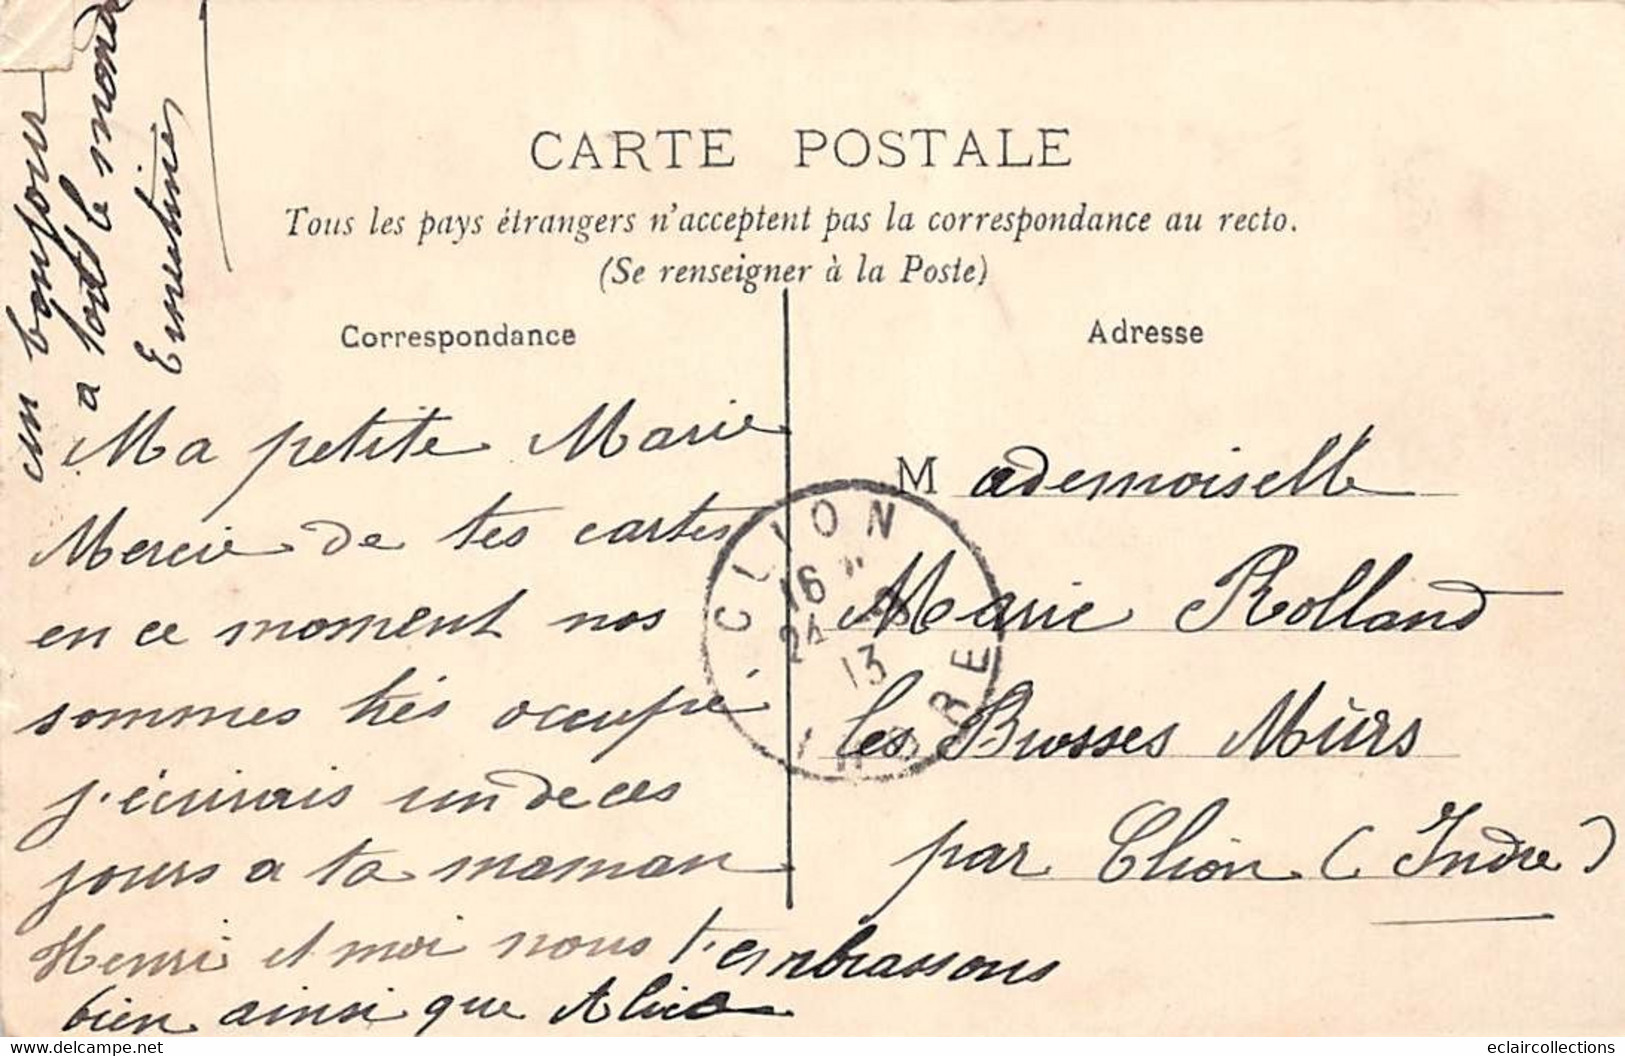 un bonjour
a tout le monde
Ernestine
CARTE POSTALE
Tous les pays étrangers n'acceptent pas la correspondance au recto.
(Se renseigner à la Poste)
Correspondance
Ma petite Marie
Mercie de tes cartes
en ce moment nos
sommes très occupé
j'écrirais un de ces
jours a ta maman
Henri et moi nous t'embrassons
bien ainsi que Alice
Adresse
Mademoiselle
Marie Rolland
les Brosses Mûrs
par Clion (Indre)
CLION
16
24
13
INDRE
delcampe.net
eclaircollections